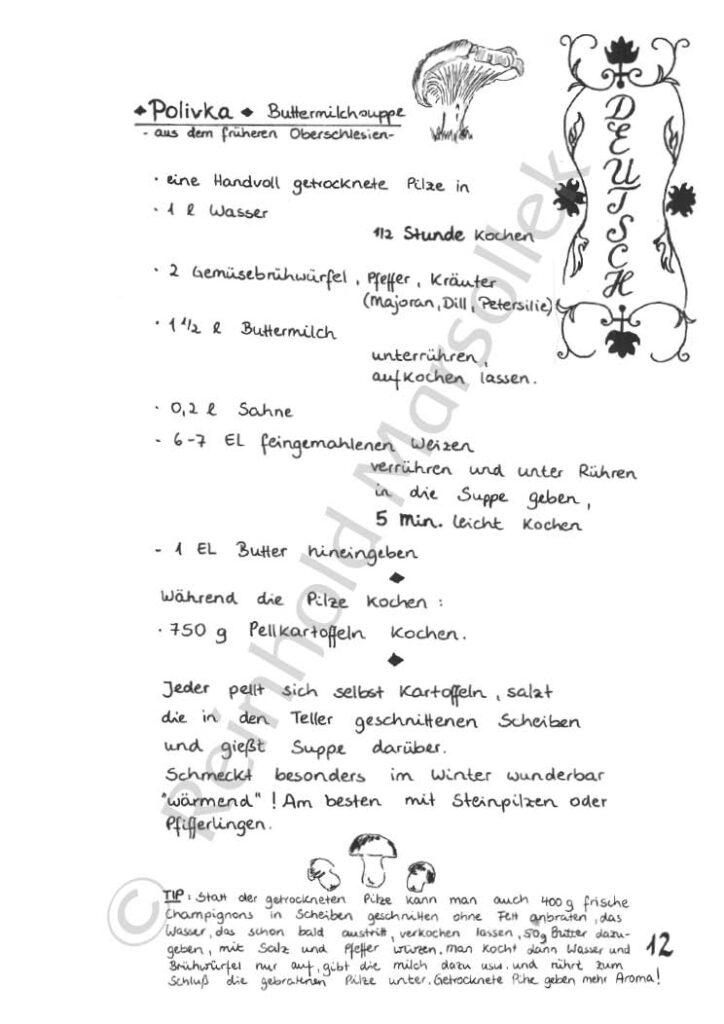 Polivka Buttermilchsuppe
- aus dem früheren Oberschlesien -
DEUTSCH
· eine Handvoll getrocknete Pilze in
· 1 l Wasser
1/2 Stunde kochen
· 2 Gemüsebrühwürfel, Pfeffer, Kräuter
(Majoran, Dill, Petersilie)
· 1 1/2 l Buttermilch
unterrühren,
aufkochen lassen.
· 0,2 l Sahne
- 6-7 EL feingemahlenen Weizen
verrühren und unter Rühren
in die Suppe geben,
5 Min. leicht kochen
- 1 EL Butter hineingeben
Während die Pilze kochen :
· 750 g Pellkartoffeln kochen.
Jeder pellt sich selbst Kartoffeln, salzt
die in den Teller geschnittenen Scheiben
und gießt Suppe darüber.
Schmeckt besonders im Winter wunderbar
"wärmend"! Am besten mit Steinpilzen oder
Pfifferlingen.
TIP: Statt der getrockneten Pilze kann man auch 400 g frische
Champignons in Scheiben geschnitten ohne Fett anbraten, das
Wasser, das schon bald austritt, verkochen lassen, 50g Butter dazu-
geben, mit Salz und Pfeffer würzen. Man kocht dann Wasser und
Brühwürfel nur auf, gibt die Milch dazu usw. und rührt zum
Schluß die gebratenen Pilze unter. Getrocknete Pilze geben mehr Aroma!
12
© Reinhold Marsollek